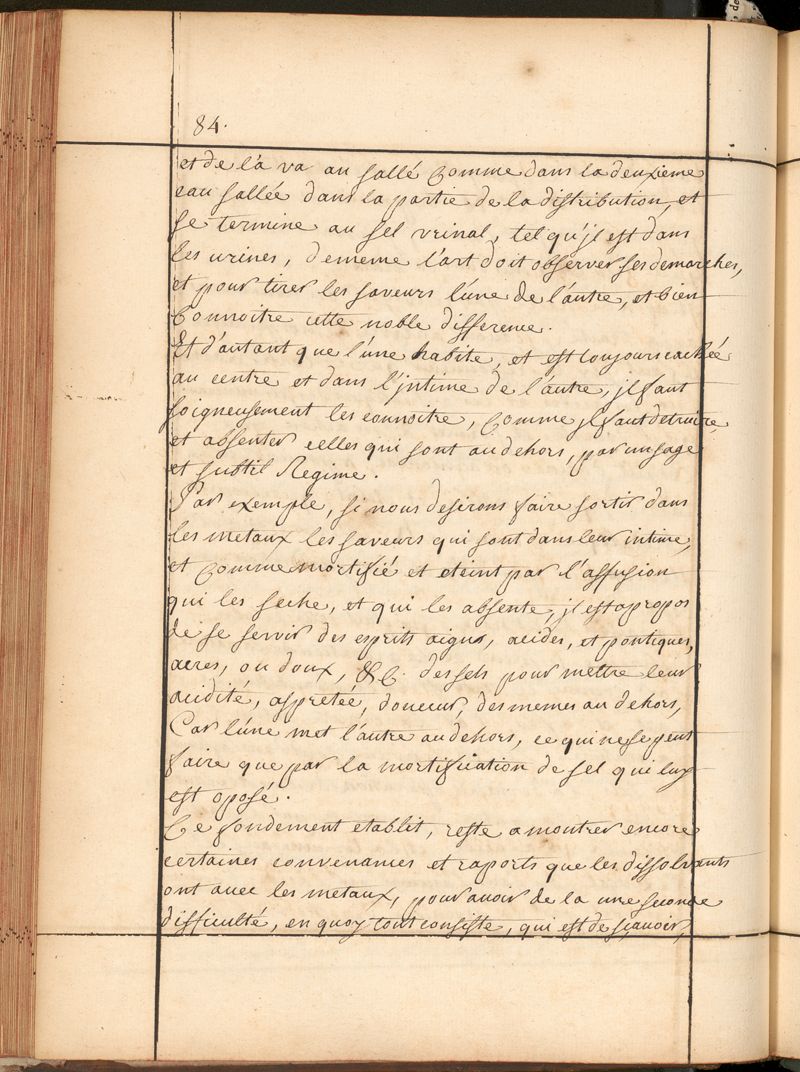 84.
et de lâ va au sallé Comme dans la deuxieme
eau sallée dans la partie de la distribution, et
se termine au sel vrinal, tel qu'jl est dans
les urines, dememe l'art doit observer ses demarches,
et pour tirer les saveurs l'une de l'autre, et bien
Connoitre cette noble difference.
Et d'autant que l'une habite, et est toujours cachée
au centre et dans l'jntime de l'autre, jl faut
soigneusement les connoitre, Comme jl faut detruire,
et absenter celles qui sont au dehors, par un sage
et subtil Regime.
Par exemple, si nous desirons faire sortir dans
les metaux les saveurs qui sont dans leur intime,
et Comme mortifié et eteint par l'affusion
qui les seche, et qui les absente, jl est apropos
de se servir des esprits aigus, acides, et pontiques,
acres, ou doux, &c. des sels pour mettre leur
acidité, aspretée, douceur, des memes au dehors,
Car l'une met l'autre au dehors, ce qui ne se peut
faire que par la mortification de sel qui luy
est oposé.
Ce fondement etablit, reste a montrer encore
certaines convenances et raports que les dissolvants
ont avec les metaux, pour avoir de la une seconde
difficulté, en quoy tout consiste, qui est de sçavoir,